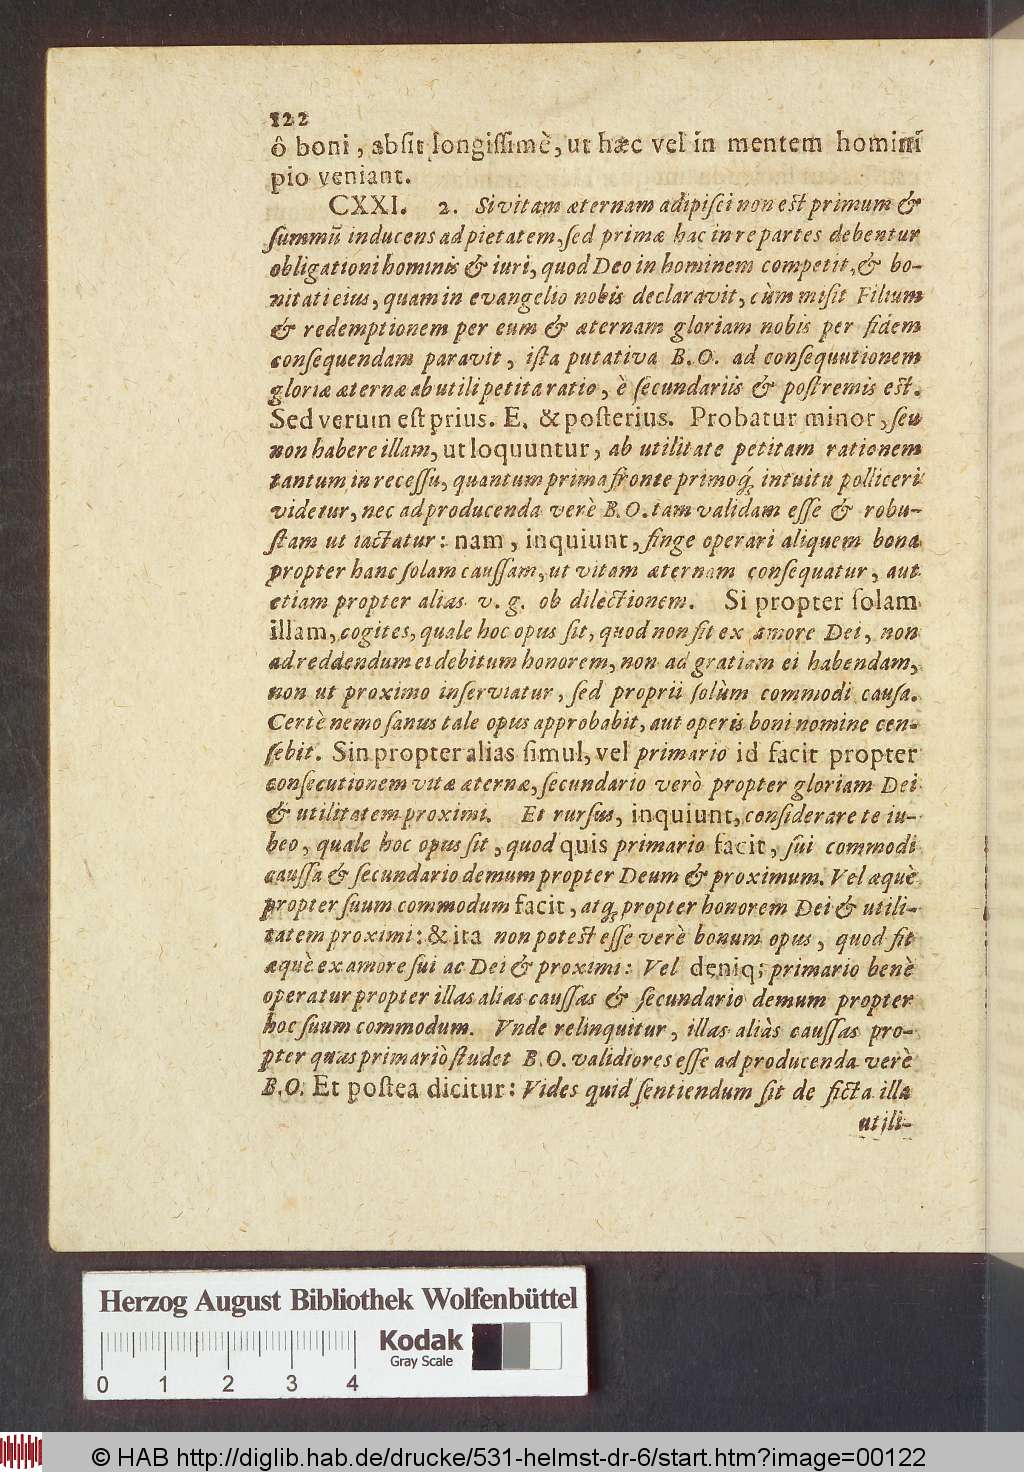 122
ô boni, absit longissimè, ut hæc vel in mentem homini
pio veniant.
CXXI. 2. Si vitam æternam adipisci non est primum &
summũ inducens ad pietatem, sed primæ hac in re partes debentur
obligationi hominis & iuri, quod Deo in hominem competit, & bo-
nitati eius, quam in evangelio nobis declaravit, cùm misit Filium
& redemptionem per eum & æternam gloriam nobis per fidem
consequendam paravit, ista putativa B.O. ad consequutionem
gloriæ æternæ ab utili petita ratio, è secundariis & postremis est.
Sed verum est prius. E. & posterius. Probatur minor, seu
non habere illam, ut loquuntur, ab utilitate petitam rationem
tantum in recessu, quantum prima fronte primoq́; intuitu polliceri
videtur, nec ad producenda verè B.O. tam validam esse & robu-
stam ut iactatur: nam, inquiunt, finge operari aliquem bona
propter hanc solam caussam, ut vitam æternam consequatur, aut
etiam propter alias v. g. ob dilectionem. Si propter solam
illam, cogites, quale hoc opus sit, quod non fit ex amore Dei, non
ad reddendum ei debitum honorem, non ad gratiam ei habendam,
non ut proximo inserviatur, sed proprii solùm commodi causa.
Certè nemo sanus tale opus approbabit, aut operis boni nomine cen-
sebit. Sin propter alias simul, vel primario id facit propter
consecutionem vitæ æternæ, secundario verò propter gloriam Dei
& utilitatem proximi. Et rursus, inquiunt, considerare te iu-
beo, quale hoc opus sit, quod quis primario facit, sui commodi
caussa & secundario demum propter Deum & proximum. Vel æquè
propter suum commodum facit, atq; propter honorem Dei & utili-
tatem proximi: & ita non potest esse verè bonum opus, quod fit
æquè ex amore sui ac Dei & proximi: Vel deniq; primario benè
operatur propter illas alias caussas & secundario demum propter
hoc suum commodum. Vnde relinquitur, illas aliàs caussas pro-
pter quas primariò studet B.O. validiores esse ad producenda verè
B.O. Et postea dicitur: Vides quid sentiendum sit de ficta illa
utili-
Herzog August Bibliothek Wolfenbüttel
Kodak
Gray Scale
0 1 2 3 4
© HAB http://diglib.hab.de/drucke/531-helmst-dr-6/start.htm?image=00122